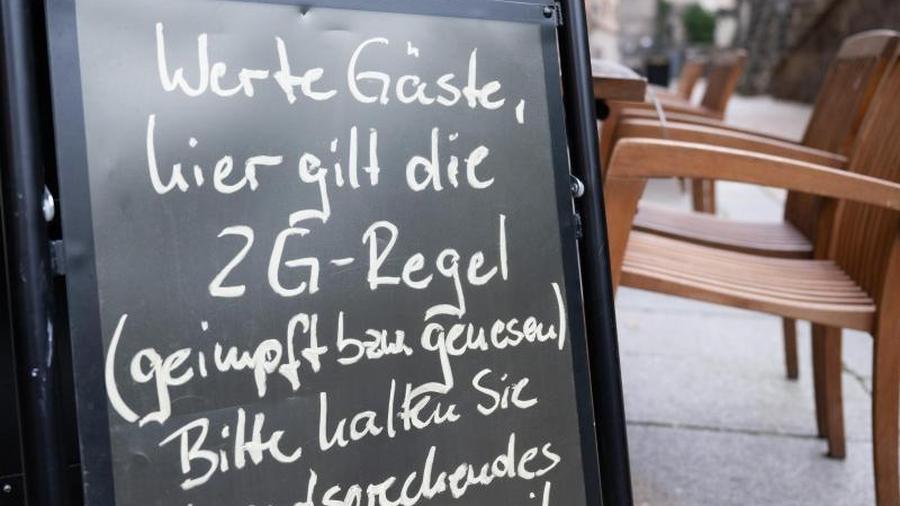 Werte Gäste,
hier gilt die
2G-Regel
(geimpft bzw. genesen)
Bitte halten Sie
entsprechendes